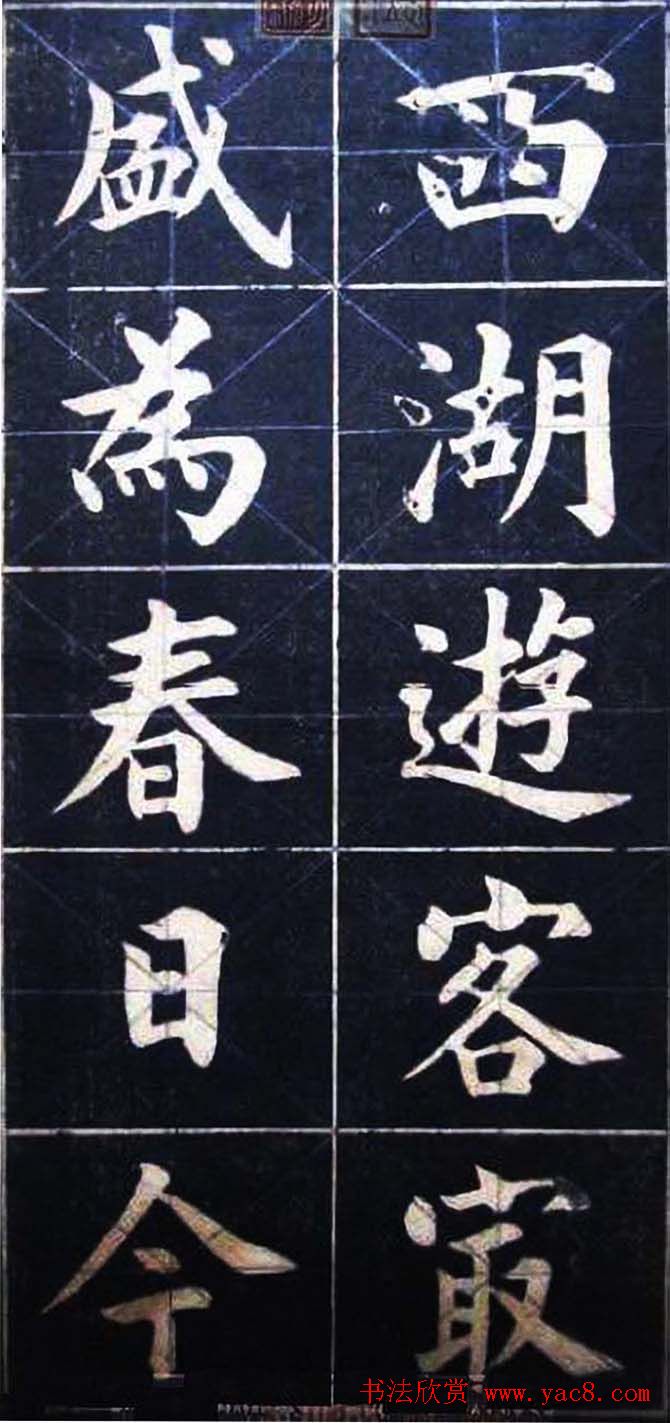 西湖遊客寂
盛為春日今
书法欣赏 www.yac8.com